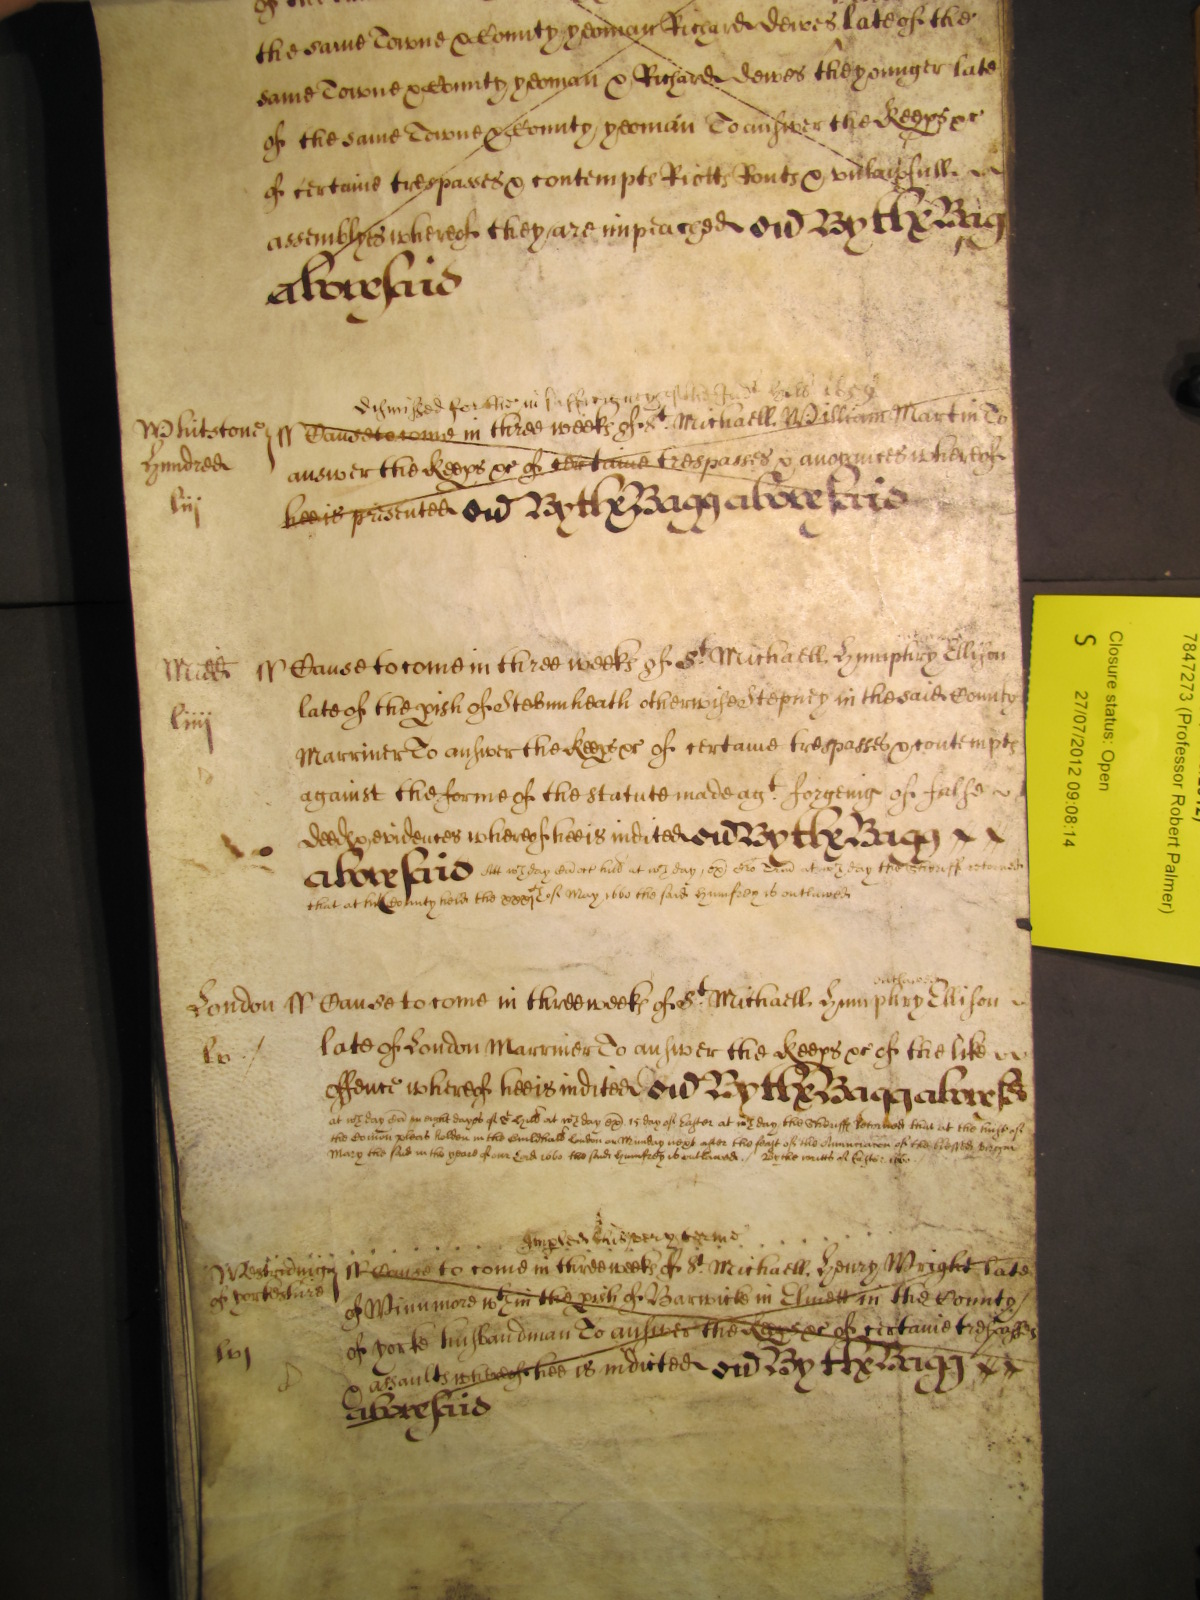 the same Towne & County yeoman Richard dewes late of the
same Towne & County yeoman & Richard dewes the younger late
of the same Towne & County yeoman To answer the Keeps &c
of certaine trespasses & contempts Riotts Routs & unlawfull
assemblyes whereof they are impeached By the Bag
aforesaid
dismissed for the in 1659
Whitstone ss Cause to come in three weeks of St Michaell William Martin To
hundred answer the Keeps &c of certaine trespasses & anoyances whereof
liij hee is presented By the Bagg aforesaid
Midd ss Cause to come in three weeks of St Michaell Humphry Ellison
liiij late of the pish of Stebunheath otherwise Stepney in the said County
Marriner To answer the Keeps &c of certaine trespasses & contempts
against the forme of the statute made agt forgeing of false
deeds & evidences whereof hee is indited By the Bagg
aforesaid Att wch day at wch day at wch day the Sheriff returned
that at his County held the xxxjth of May 1660 the said Humfrey is outlawed
outlawed
London ss Cause to come in three weeks of St Michaell Humphry Ellison
lv late of London Marriner To answer the Keeps &c of the like
offence whereof hee is indited By the Bagg aforesd
at wch day in eight dayes of St Hill at wch day 15 day of Easter at wch day the Sheriffs Returned that at the hust of
the Comon pleas holden in the Guildhall London on Munday next after the feast of the Annunciacon of the blessed virgin
Mary the said in the yeare of our Lord 1660 the said Humfrey is outlawed By the writts of Easter 1660
terme
Westridinge ss Cause to come in three weeks of St Michaell Henry Wright late
of yorkeshire of Winnmore wthin the pish of Barwicke in Elmett in the County
lvj of yorke husbandman To answer the Keeps &c of certaine trespasses
& assaults whereof hee is indicted By the Bagg
aforesaid
7847273 (Professor Robert Palmer)
Closure status: Open
27/07/2012 09:08:14
S